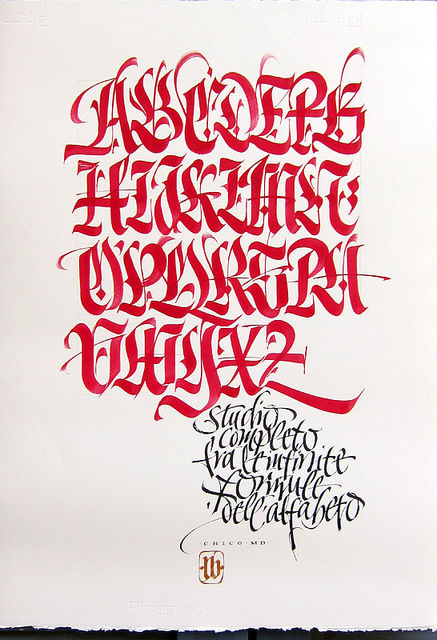 ABCDEFG
HIJKLMN
OPQRSTU
VWYXZ
studio
completo
fra le infinite
formule
dell'alfabeto
CHICO·MD·